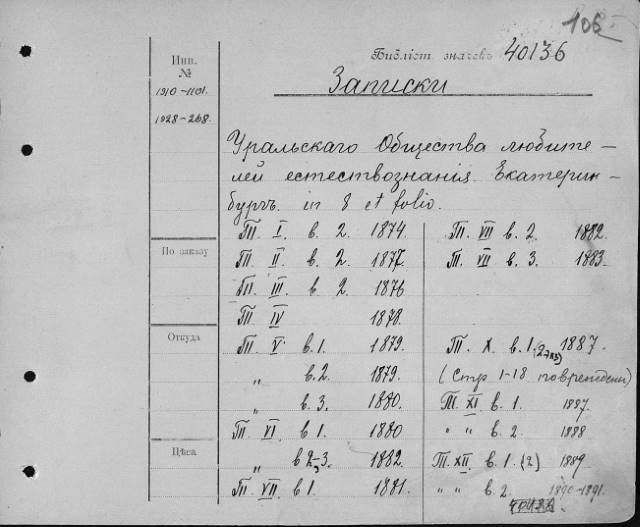 106
Библіот. значекъ 40136
Записки
Инв.
№
1910-1101.
1928-268.
Уральскаго Общества любите-
лей естествознанія. Екатерин-
бургъ. in 8 et folio.
Т. I. в. 2. 1874
Т. II в. 2. 1877.
Т. III. в 2. 1876
Т. IV 1878.
Т. V в. 1. 1879.
„ в. 2. 1879.
„ в. 3. 1880.
Т. VI в. 1 1880
„ в 2-3. 1882.
Т. VII в 1. 1881.
Т. VII в. 2 1882.
Т. VII в. 3. 1883.
Т. X в. 1. 1887.
(Стр 1-18 повреждены)
Т. XI в. 1. 1887.
„ „ в. 2. 1888
Т. XII в. 1. (2) 1889
„ „ в. 2. 1890-1891.
По заказу
Откуда
Цѣна